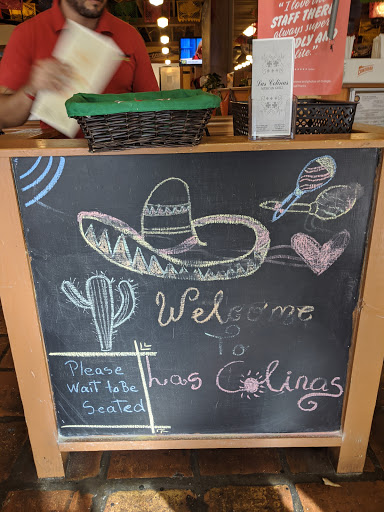 "I love the
STAFF THERE
always super
friendly and
Las Colinas
Welcome
To
Las Colinas
Please
Wait to Be
Seated